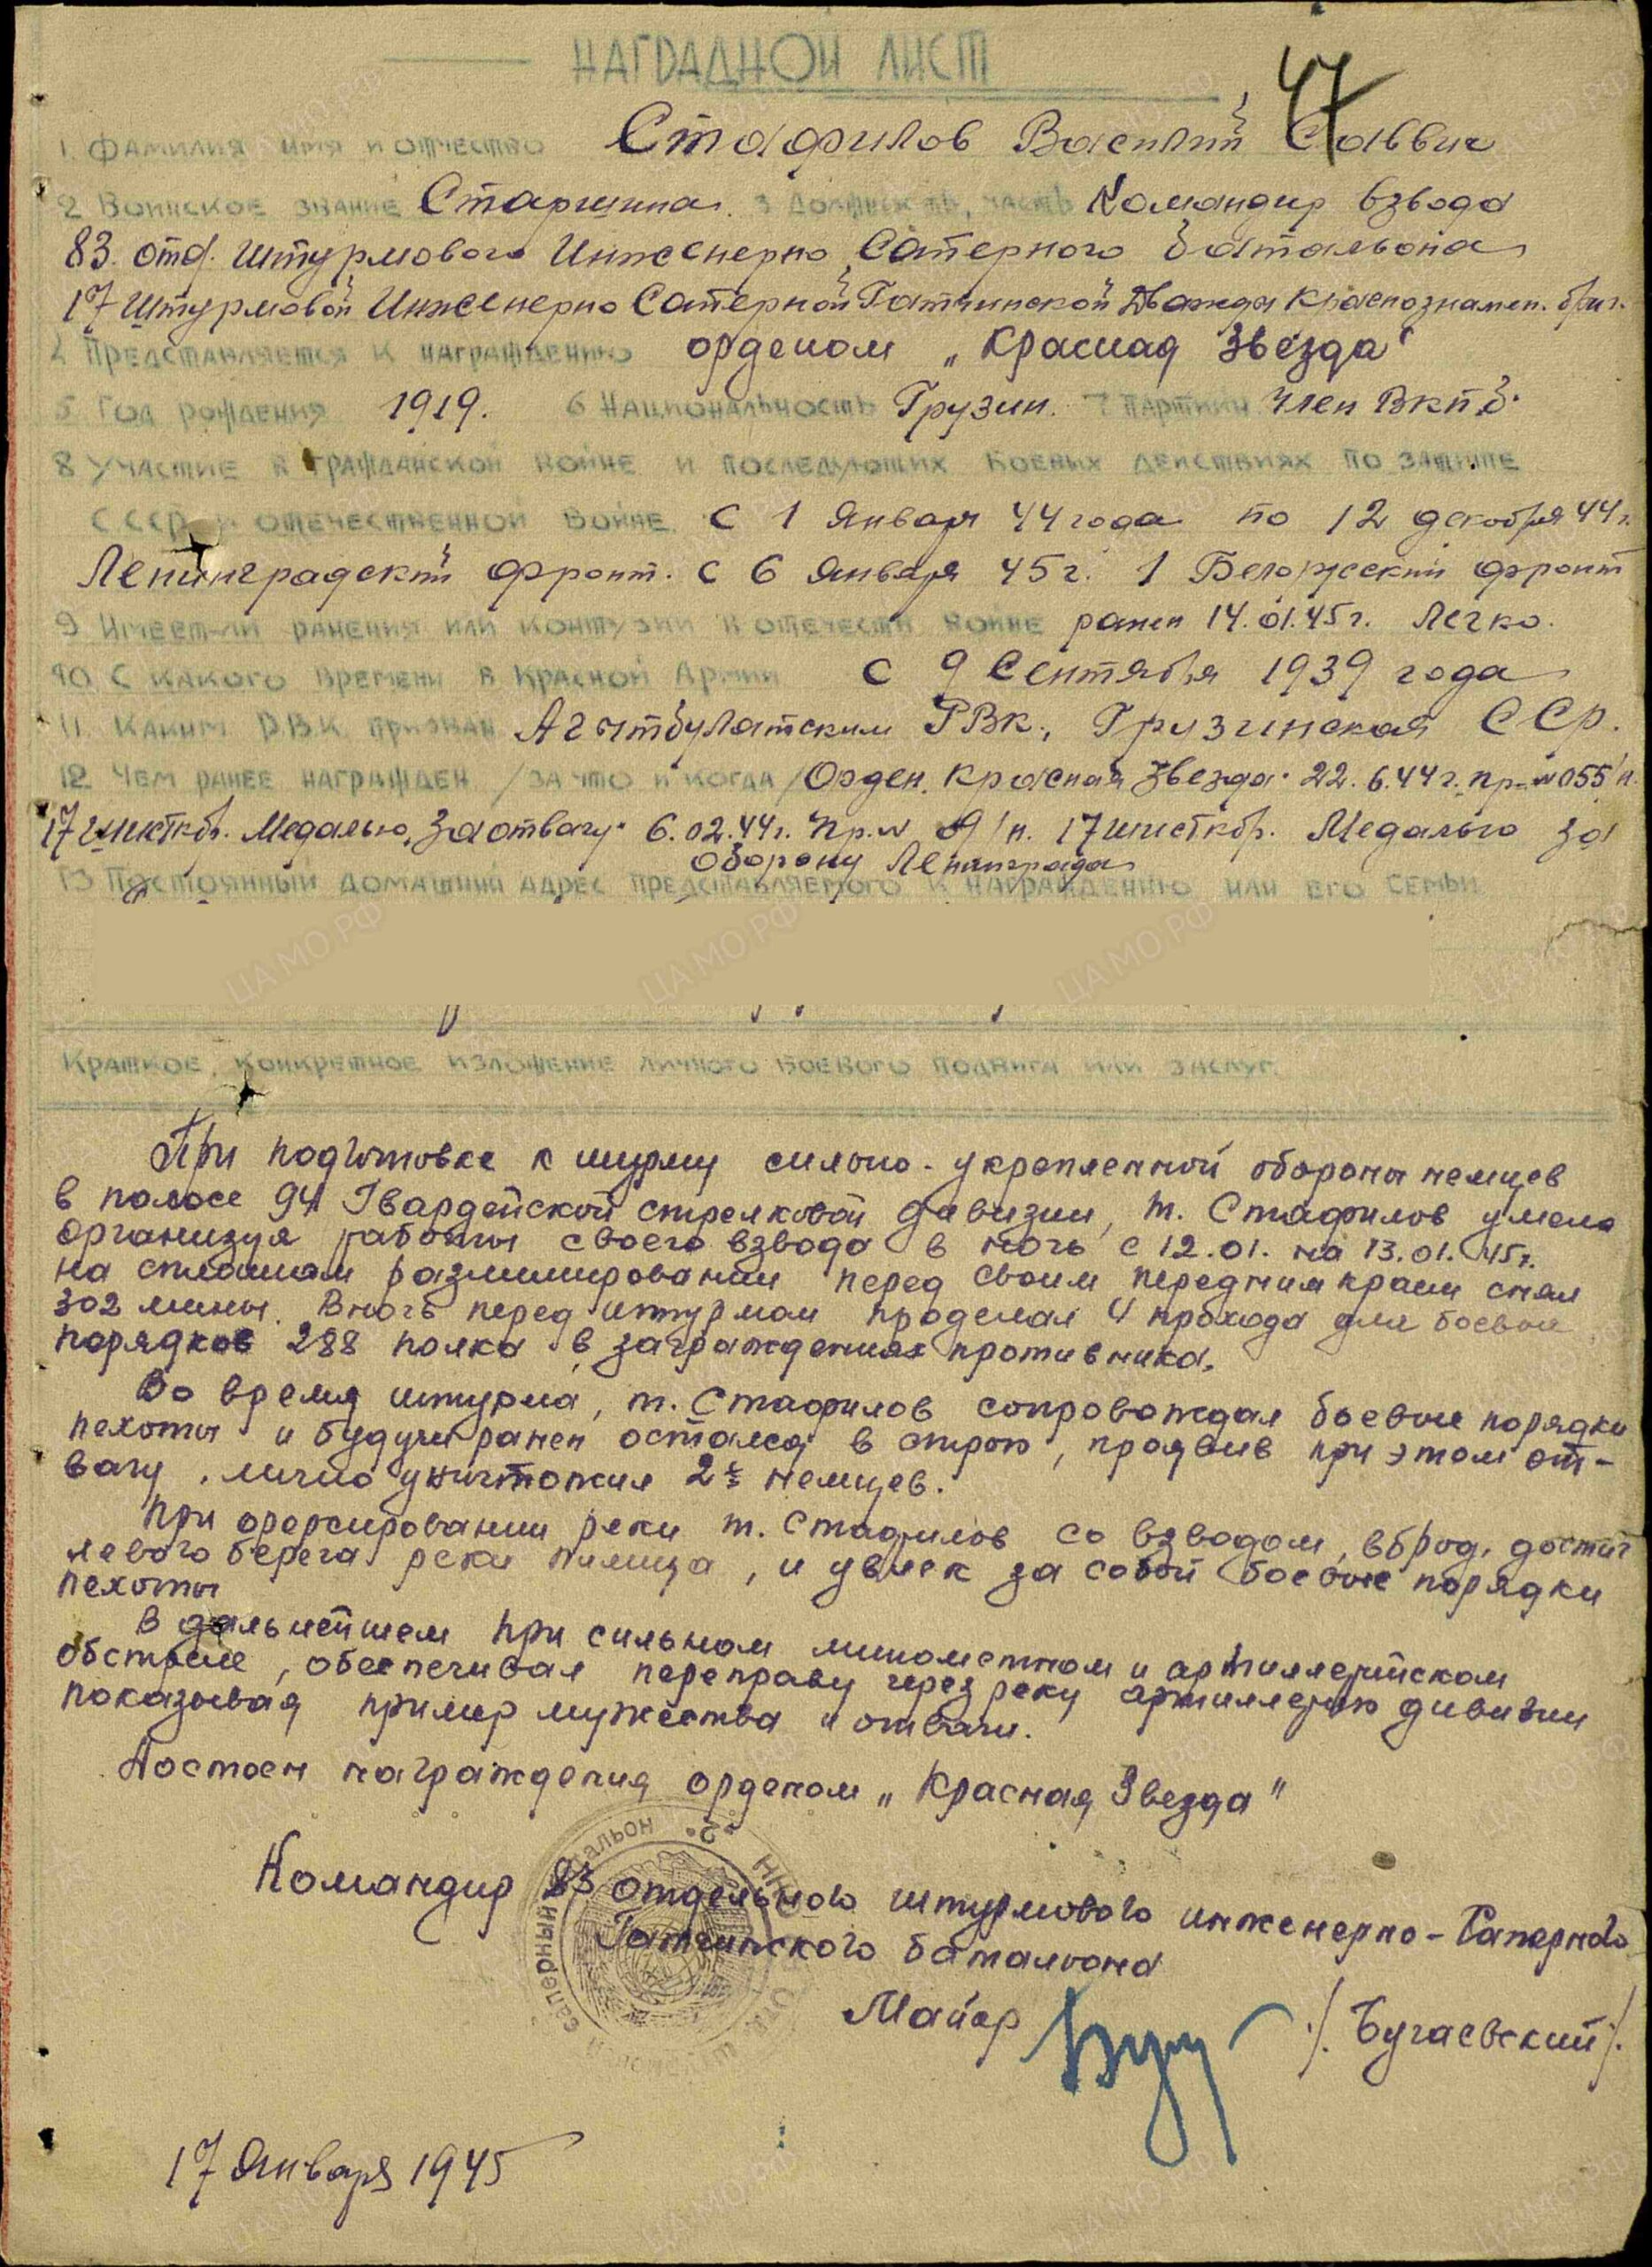 НАГРАДНОЙ ЛИСТ
47
1. ФАМИЛИЯ ИМЯ И ОТЧЕСТВО Стафилов Василий Саввич
2 ВОИНСКОЕ ЗВАНИЕ Старшина. 3 ДОЛЖНОСТЬ, ЧАСТЬ Командир взвода
83. отд. Штурмового Инженерно Саперного батальона
17 Штурмовой Инженерно Саперной Гатчинской Дважды Краснознамен. бриг.
4 ПРЕДСТАВЛЯЕТСЯ К НАГРАЖДЕНИЮ орденом „Красная Звезда"
5 ГОД РОЖДЕНИЯ 1919. 6 НАЦИОНАЛЬНОСТЬ Грузин. 7 ПАРТИЙН. Член ВКП.б.
8 УЧАСТИЕ В ГРАЖДАНСКОЙ ВОЙНЕ И ПОСЛЕДУЮЩИХ БОЕВЫХ ДЕЙСТВИЯХ ПО ЗАЩИТЕ
СССР И ОТЕЧЕСТВЕННОЙ ВОЙНЕ. С 1 Января 44 года по 12 декабря 44 г.
Ленинградский фронт. с 6 Января 45 г. 1 Белорусский фронт
9 ИМЕЕТ-ЛИ РАНЕНИЯ ИЛИ КОНТУЗИИ В ОТЕЧЕСТВ ВОЙНЕ ранен 14.01.45 г. Легко.
10. С КАКОГО ВРЕМЕНИ В КРАСНОЙ АРМИИ С 9 Сентября 1939 года
11. КАКИМ Р.В.К. ПРИЗВАН РВК., Грузинская ССР.
12. ЧЕМ РАНЕЕ НАГРАЖДЕН /ЗА ЧТО И КОГДА/ Орден. Красная Звезда. 22.6.44 г. пр-№055/н.
Медалью „За отвагу" 6.02.44 г. Пр. № Медалью за
оборону Ленинграда
13 ПОСТОЯННЫЙ ДОМАШНИЙ АДРЕС ПРЕДСТАВЛЯЕМОГО К НАГРАЖДЕНИЮ ИЛИ ЕГО СЕМЬИ
КРАТКОЕ, КОНКРЕТНОЕ ИЗЛОЖЕНИЕ ЛИЧНОГО БОЕВОГО ПОДВИГА ИЛИ ЗАСЛУГ.
При подготовке к шурму сильно-укрепленной обороны немцев
в полосе 94 Гвардейской стрелковой дивизии, т. Стафилов умело
организуя работы своего взвода в ночь с 12.01. на 13.01.45 г.
на сплошном разминировании перед своим передним краем снял
302 мины. В ночь перед штурмом проделал 4 прохода для боевых
порядков 288 полка в заграждениях противника.
Во время штурма, т. Стафилов сопровождал боевые порядки
пехоты и будучи ранен остался в строю, проявив при этом от-
вагу, лично уничтожил 2х немцев.
При форсировании реки т. Стафилов со взводом, вброд, достиг
левого берега реки Пилица, и увлек за собой боевые порядки
пехоты
В дальнейшем при сильном минометном и артиллерийском
обстреле, обеспечивал переправу через реку артиллерию дивизии
показывая пример мужества и отваги.
Достоен награждения орденом „Красная Звезда"
Командир 83 отдельного штурмового инженерно-Саперного
Гатчинского батальона
Майор /. Бугаевский /.
17 Января 1945